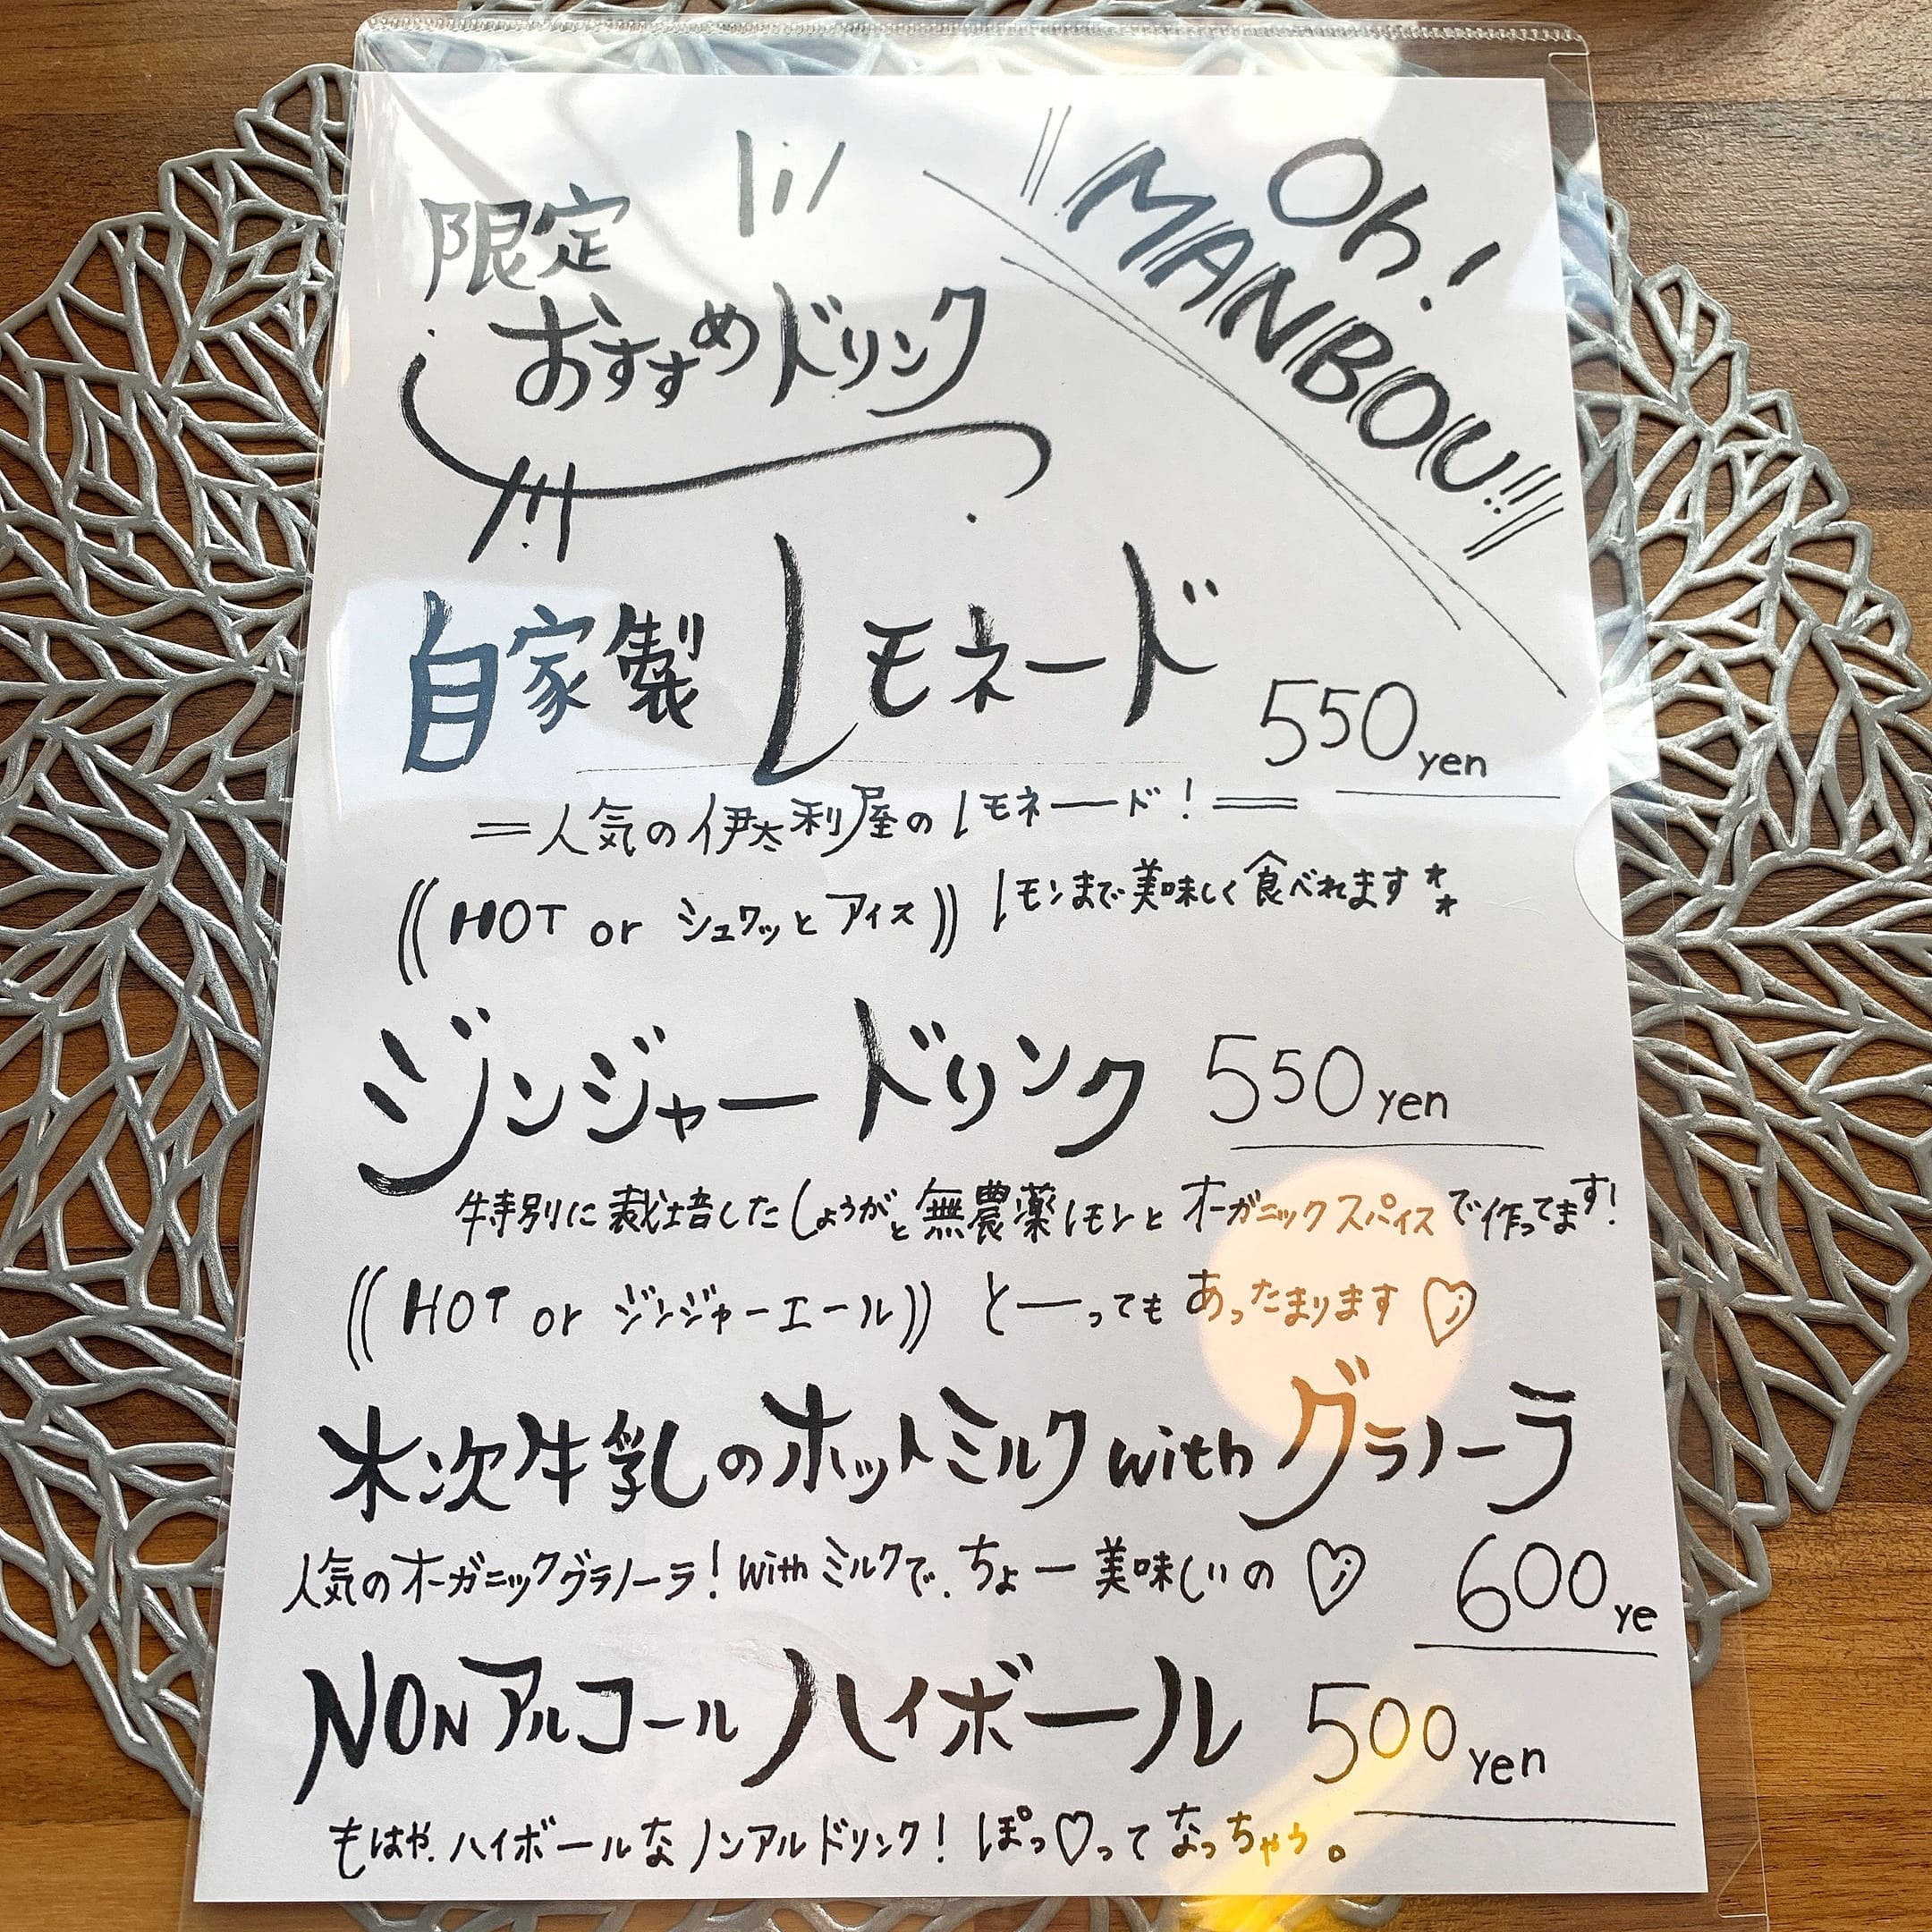 Oh!
MANBOU!!!
限定
おすすめドリンク
自家製 レモネード 550yen
＝人気の伊太利屋のレモネード！＝
((HOT or シュワッと アイス)) レモンまで美味しく食べれます**
ジンジャードリンク 550yen
特別に栽培したしょうがと無農薬レモンとオーガニックスパイスで作ってます！
((HOT or ジンジャーエール)) と——っても あったまります♡
木次牛乳のホットミルクwithグラノーラ
人気のオーガニックグラノーラ！withミルクで、ちょー美味しいの♡ 600ye
NONアルコールハイボール 500yen
もはや、ハイボールなノンアルドリンク！ぽっ♡ってなっちゃう。